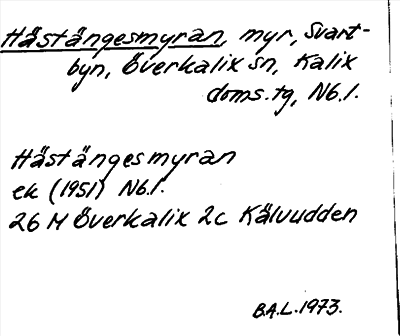 Hästängesmyran, myr, Svart-
byn, Överkalix sn, Kalix
doms.tg, Nb.l.
Hästängesmyran
ek (1951) Nb.l.
26 M Överkalix 2c Kälvudden
B.A.L. 1973.